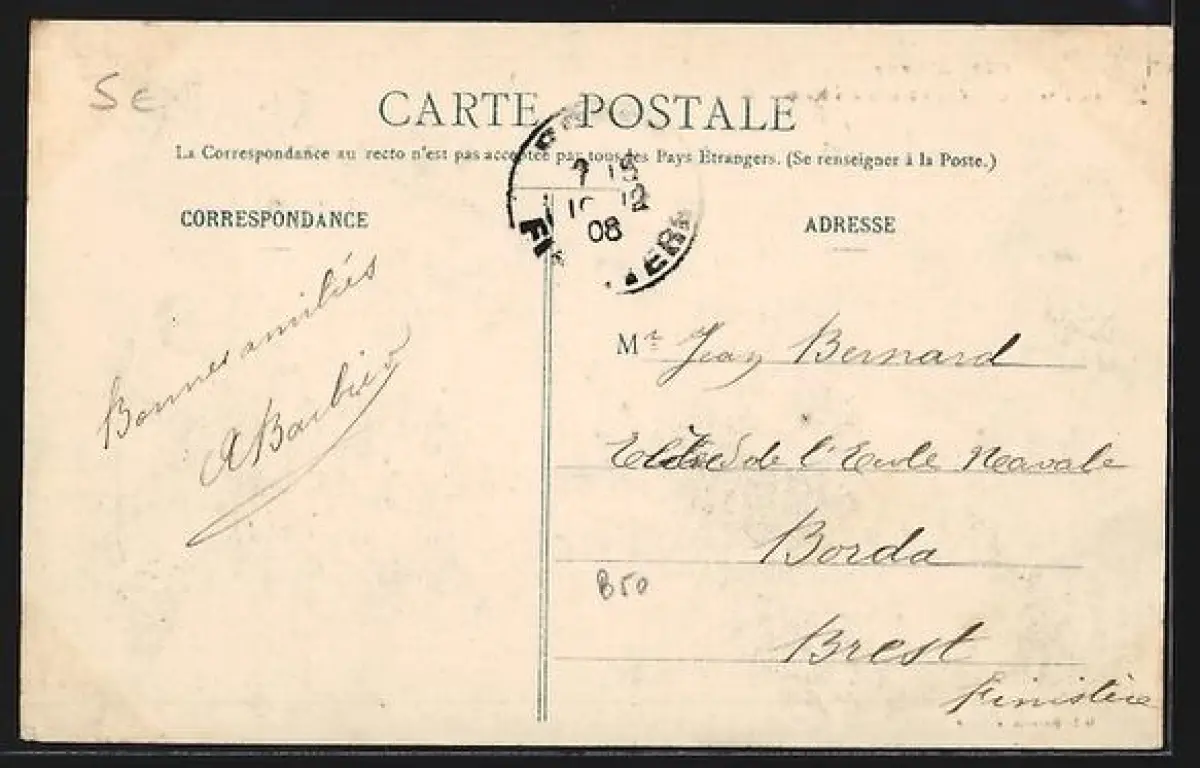 5e
CARTE POSTALE
La Correspondance au recto n'est pas acceptée par tous les Pays Etrangers. (Se renseigner à la Poste.)
7 15
12
08
CORRESPONDANCE
ADRESSE
Bonnes amitiés
A Barbier
Mr Jean Bernard
de l'Ecole Navale
Borda
B50
Brest
Finistère